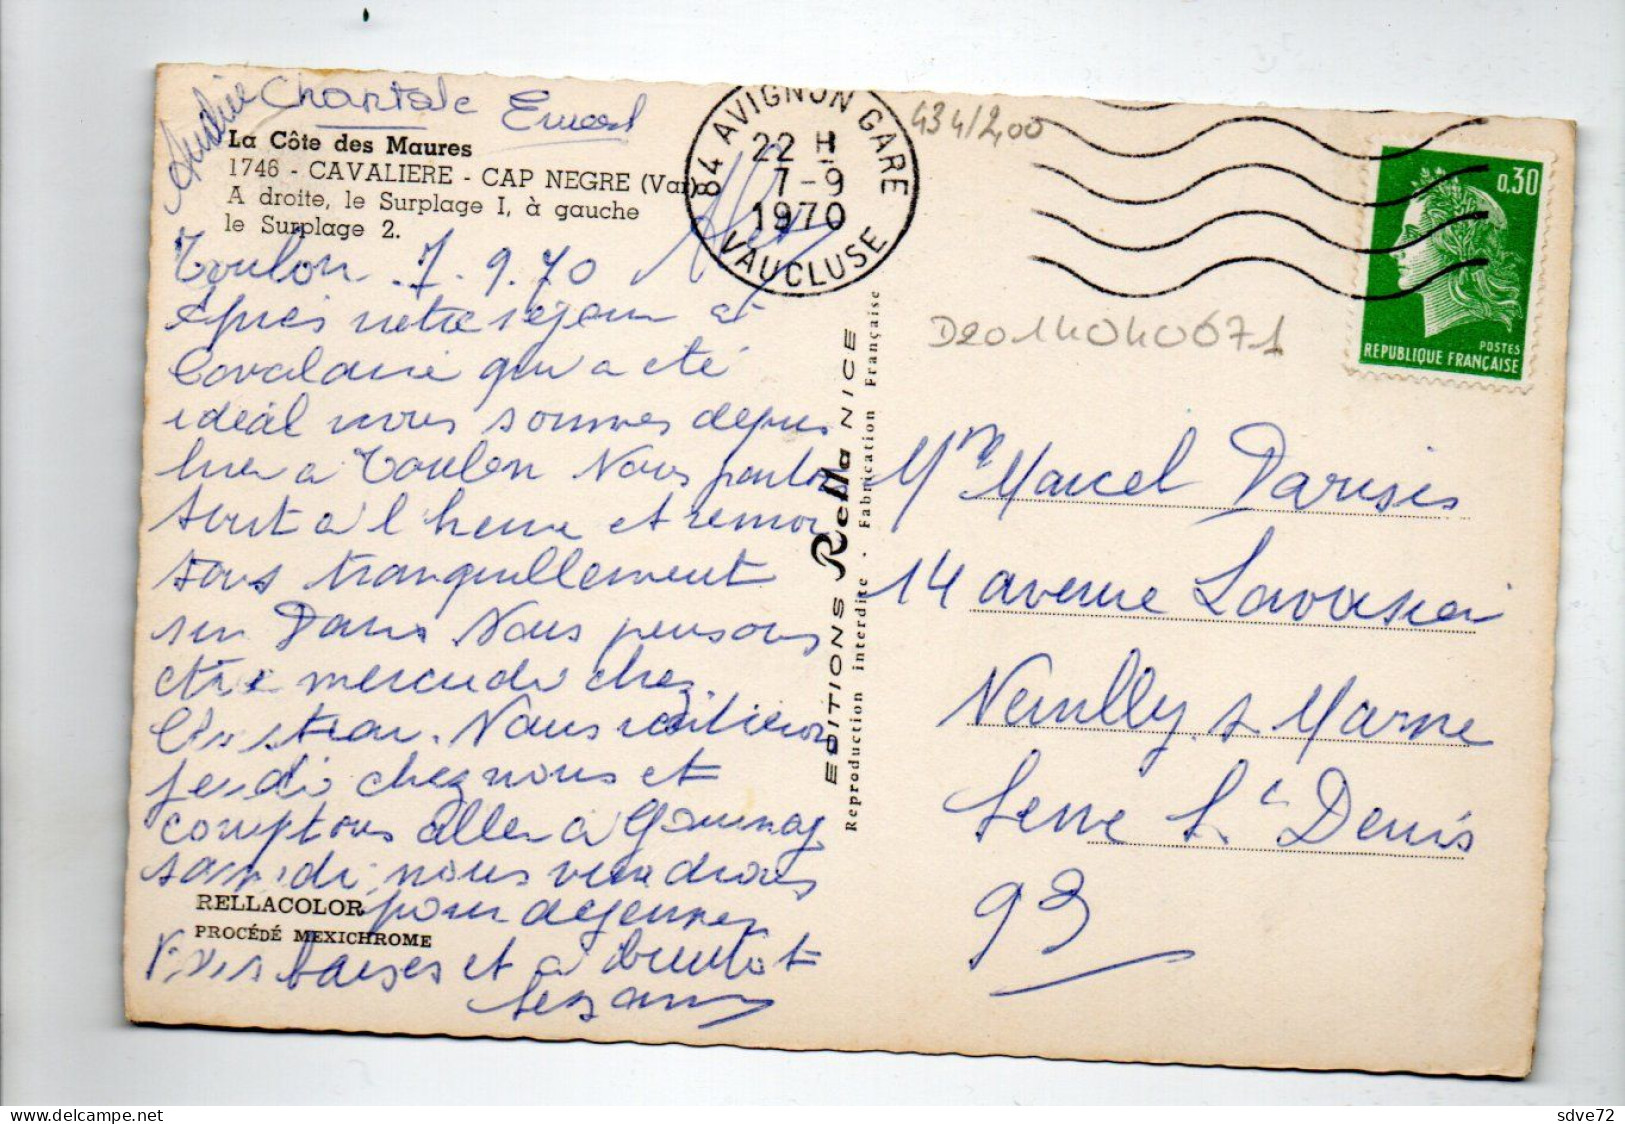 Chantale
La Côte des Maures
1746 - CAVALIERE - CAP NEGRE (Var)
A droite, le Surplage I, à gauche
le Surplage 2.
Toulon 7.9.70
Après notre séjour à
Cavalaire qui a été
idéal nous sommes depuis
hier à Toulon Nous partons
tout à l'heure et remon
tons tranquillement
sur Paris Nous pensons
être mercredi chez
Christian. Nous
jeudi chez nous et
comptons aller à
samedi nous viendrons
pour dejeuner
baises et a bientot
RELLACOLOR
PROCÉDÉ MEXICHROME
84 AVIGNON GARE
22 H
7-9
1970
VAUCLUSE
434/2,00
D2014040671
EDITIONS Rella NICE
Reproduction interdite - Fabrication Française
0,30
POSTES
REPUBLIQUE FRANÇAISE
Mme Marcel Parisis
14 avenue Lavoisier
Neuilly s Marne
Seine St Denis
93
sdve72